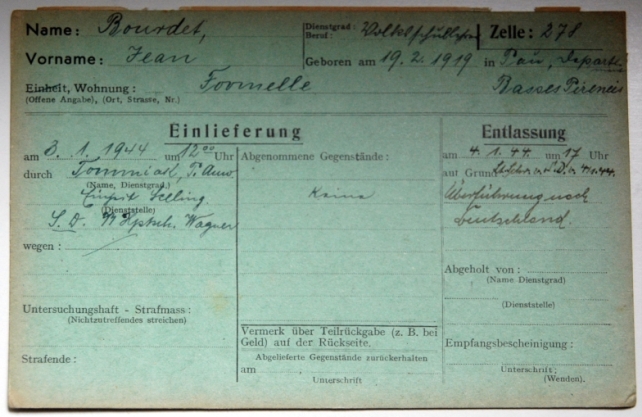 Name: Bourdet, Dienstgrad: Beruf: Volksschullehrer Zelle: 278
Vorname: Jean Geboren am 19.2.1919 in Pau, Departs.
Einheit, Wohnung: Formelle Basses Pirenéis
(Offene Angabe), (Ort, Strasse, Nr.)
Einlieferung Entlassung
am 3.1.1944 um 12⁰⁰ Uhr Abgenommene Gegenstände: am 4.1.44. um 17 Uhr
durch auf Grund
(Name, Dienstgrad) Keine Überführung nach
(Dienststelle) Deutschland.
S.D. Wagner
wegen: Abgeholt von:
(Name Dienstgrad)
Untersuchungshaft - Strafmass: (Dienststelle)
(Nichtzutreffendes streichen)
Vermerk über Teilrückgabe (z. B. bei
Geld) auf der Rückseite. Empfangsbescheinigung:
Strafende: Abgelieferte Gegenstände zurückerhalten
am Unterschrift:
Unterschrift (Wenden).